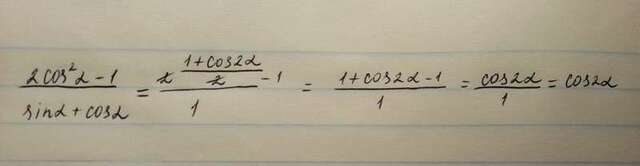 (2cos²α - 1)/(sinα + cosα) = (2 (1 + cos2α)/2 - 1)/1 = (1 + cos2α - 1)/1 = cos2α/1 = cos2α